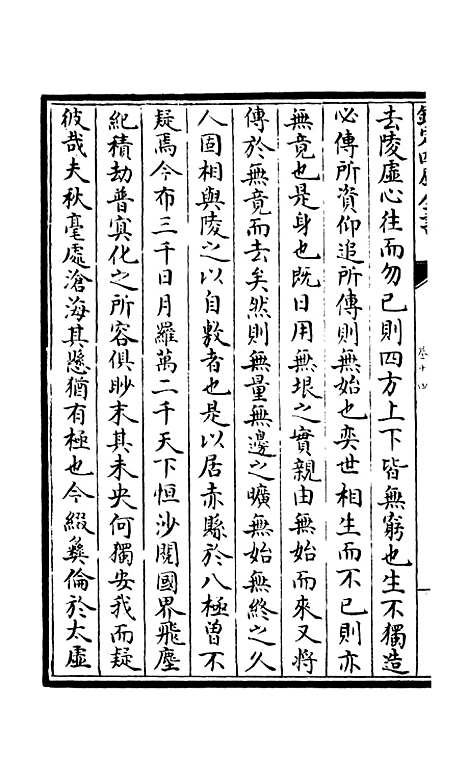 欽定四庫全書
卷十四
去陵虛心往而勿已則四方上下皆無窮也生不獨造
必傳所資仰追所傳則無始也奕世相生而不已則亦
無竟也是身也既日用無垠之實親由無始而來又將
傳於無竟而去矣然則無量無邊之曠無始無終之久
人固相與陵之以自敷者也是以居赤縣於八極曾不
疑焉今布三千日月羅萬二千天下恒沙閱國界飛塵
紀積劫普冥化之所容俱眇末其未央何獨安我而疑
彼哉夫秋毫處滄海其懸猶有極也今綴彞倫於太虛